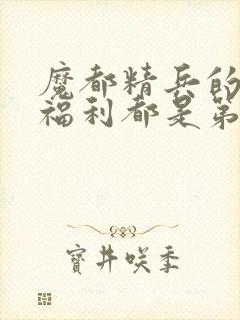 魔都精兵的
福利都是第
寶井咲季